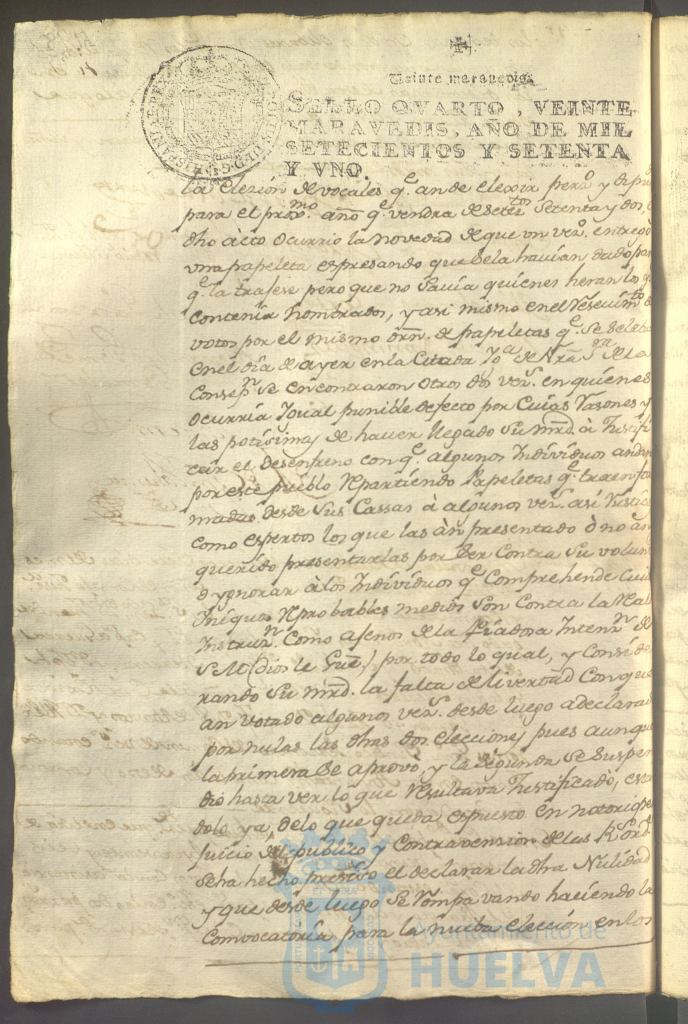 Veinte maravedis.
SELLO QVARTO, VEINTE
MARAVEDIS, AÑO DE MIL
SETECIENTOS Y SETENTA
Y VNO.
HISPANIAR REX
la eleccion de vocales q.e an de elexir per.o y
para el prox.mo año q.e vendra de setez.tos setenta y dos,
dho acto ocurrio la novedad de que un vez.o entregò
una papeleta expresando que se la havian dado para
q.e la trajese pero que no savia quienes heran los q.
contenia nombrados, y asi mismo en el rescuim.to de
votos por el mismo orn. de papeletas q.e se
en el dia de ayer en la Citada Ig.a de Nrâ S.ra de la
Consep.n se encontraron otros dos vez.s en quienes
ocurria igual punible defecto por cuias rasones y
las potisimas de haver llegado Su mrd. à Justifi
car el desenfreno con q.e algunos Individuos
por este pueblo repartiendo Papeletas q.e traen for
madas desde sus Cassas à algunos vez.s asi rusticos
como espertos los que las àn presentado ò no àn
querido presentarlas por ser contra su volun
d ygnorar à los Individuos q.e Comprehende cuio
Iniquos reprobables medios son contra la Real
Instruz.n como agenos de la piadosa Intenz.n de
S. M. (Dios le Gue.) por todo lo qual, y Conside
rando Su mrd. la falta de livertad con que
an votado algunos vez.s desde luego a declarad
por nulas las dhas dos elecciones pues aunque
la primera se aprovò, y la segunda se suspen
diò hasta ver lo que resultava Justificado, está
dolo ya, de lo que queda espuesto en notorio per
juicio del publico y Contravension de las R.s Ord.
se ha hecho presiso el declarar la dha Nulidad
y que desde luego se rompa vando haciendo la
Convocatoria para la nueba elección en los
Ayuntamiento de
HUELVA